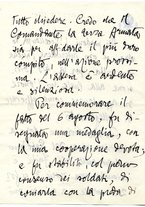 Tutto chiedere. Credo che il
Comandante la terza Armata
sia per affidarle il più duro
compito nell'azione prossi-
ma. L'attesa è ardente
e silenziosa.
Per commemorare il
fatto del 6 agosto, fu di-
segnata una medaglia, con
la mia cooperazione devota;
e fu stabilito, col
consenso dei soldati, di
coniarla con la preda di